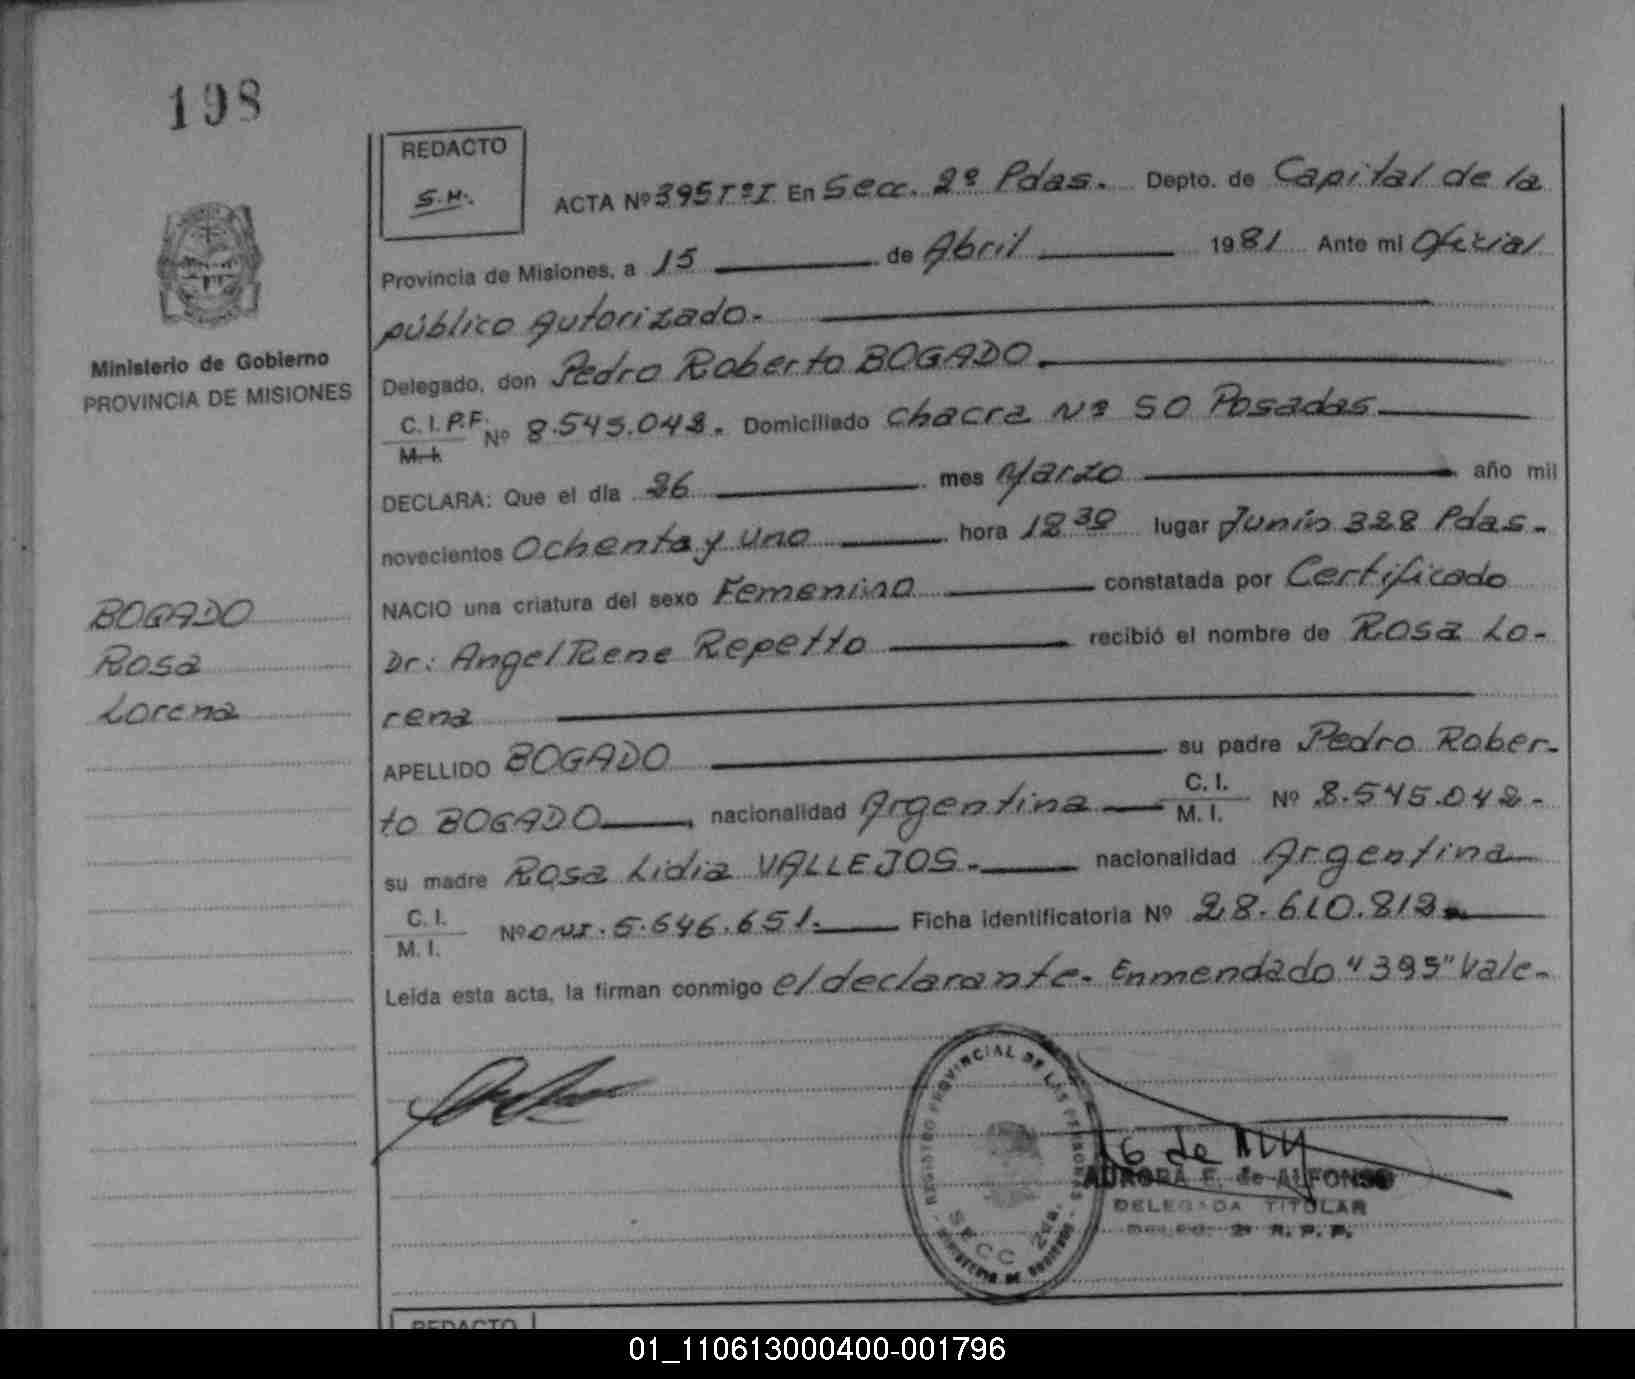 198
REDACTO
S.H.
ACTA Nº 395 Tº I En Secc. 2º Pdas. Depto. de Capital de la
Provincia de Misiones, a 15 de Abril 1981 Ante mi Oficial
público Autorizado.-
Delegado, don Pedro Roberto BOGADO.
C. I. P.F. Nº 8.545.048. Domiciliado Chacra Nº 50 Posadas
M. I.
DECLARA: Que el día 26 mes Marzo año mil
novecientos Ochenta y uno hora 18 30 lugar Junín 328 Pdas.-
NACIO una criatura del sexo Femenino constatada por Certificado
Dr: Angel Rene Repetto recibió el nombre de Rosa Lo-
rena
APELLIDO BOGADO su padre Pedro Rober-
to BOGADO, nacionalidad Argentina C. I. Nº 8.545.048.-
M. I.
su madre Rosa Lidia VALLEJOS.- nacionalidad Argentina
C. I. Nº DNI. 5.646.651.- Ficha identificatoria Nº 28.610.813
M. I.
Leída esta acta, la firman conmigo el declarante.- Enmendado "395" Vale.-
Ministerio de Gobierno
PROVINCIA DE MISIONES
BOGADO
Rosa
Lorena
REGISTRO PROVINCIAL DE LAS PERSONAS
SECC 2da.
MINISTERIO DE GOBIERNO
AURORA F. de ALFONSO
DELEGADA TITULAR
R. P. P.
REDACTO
01_110613000400-001796